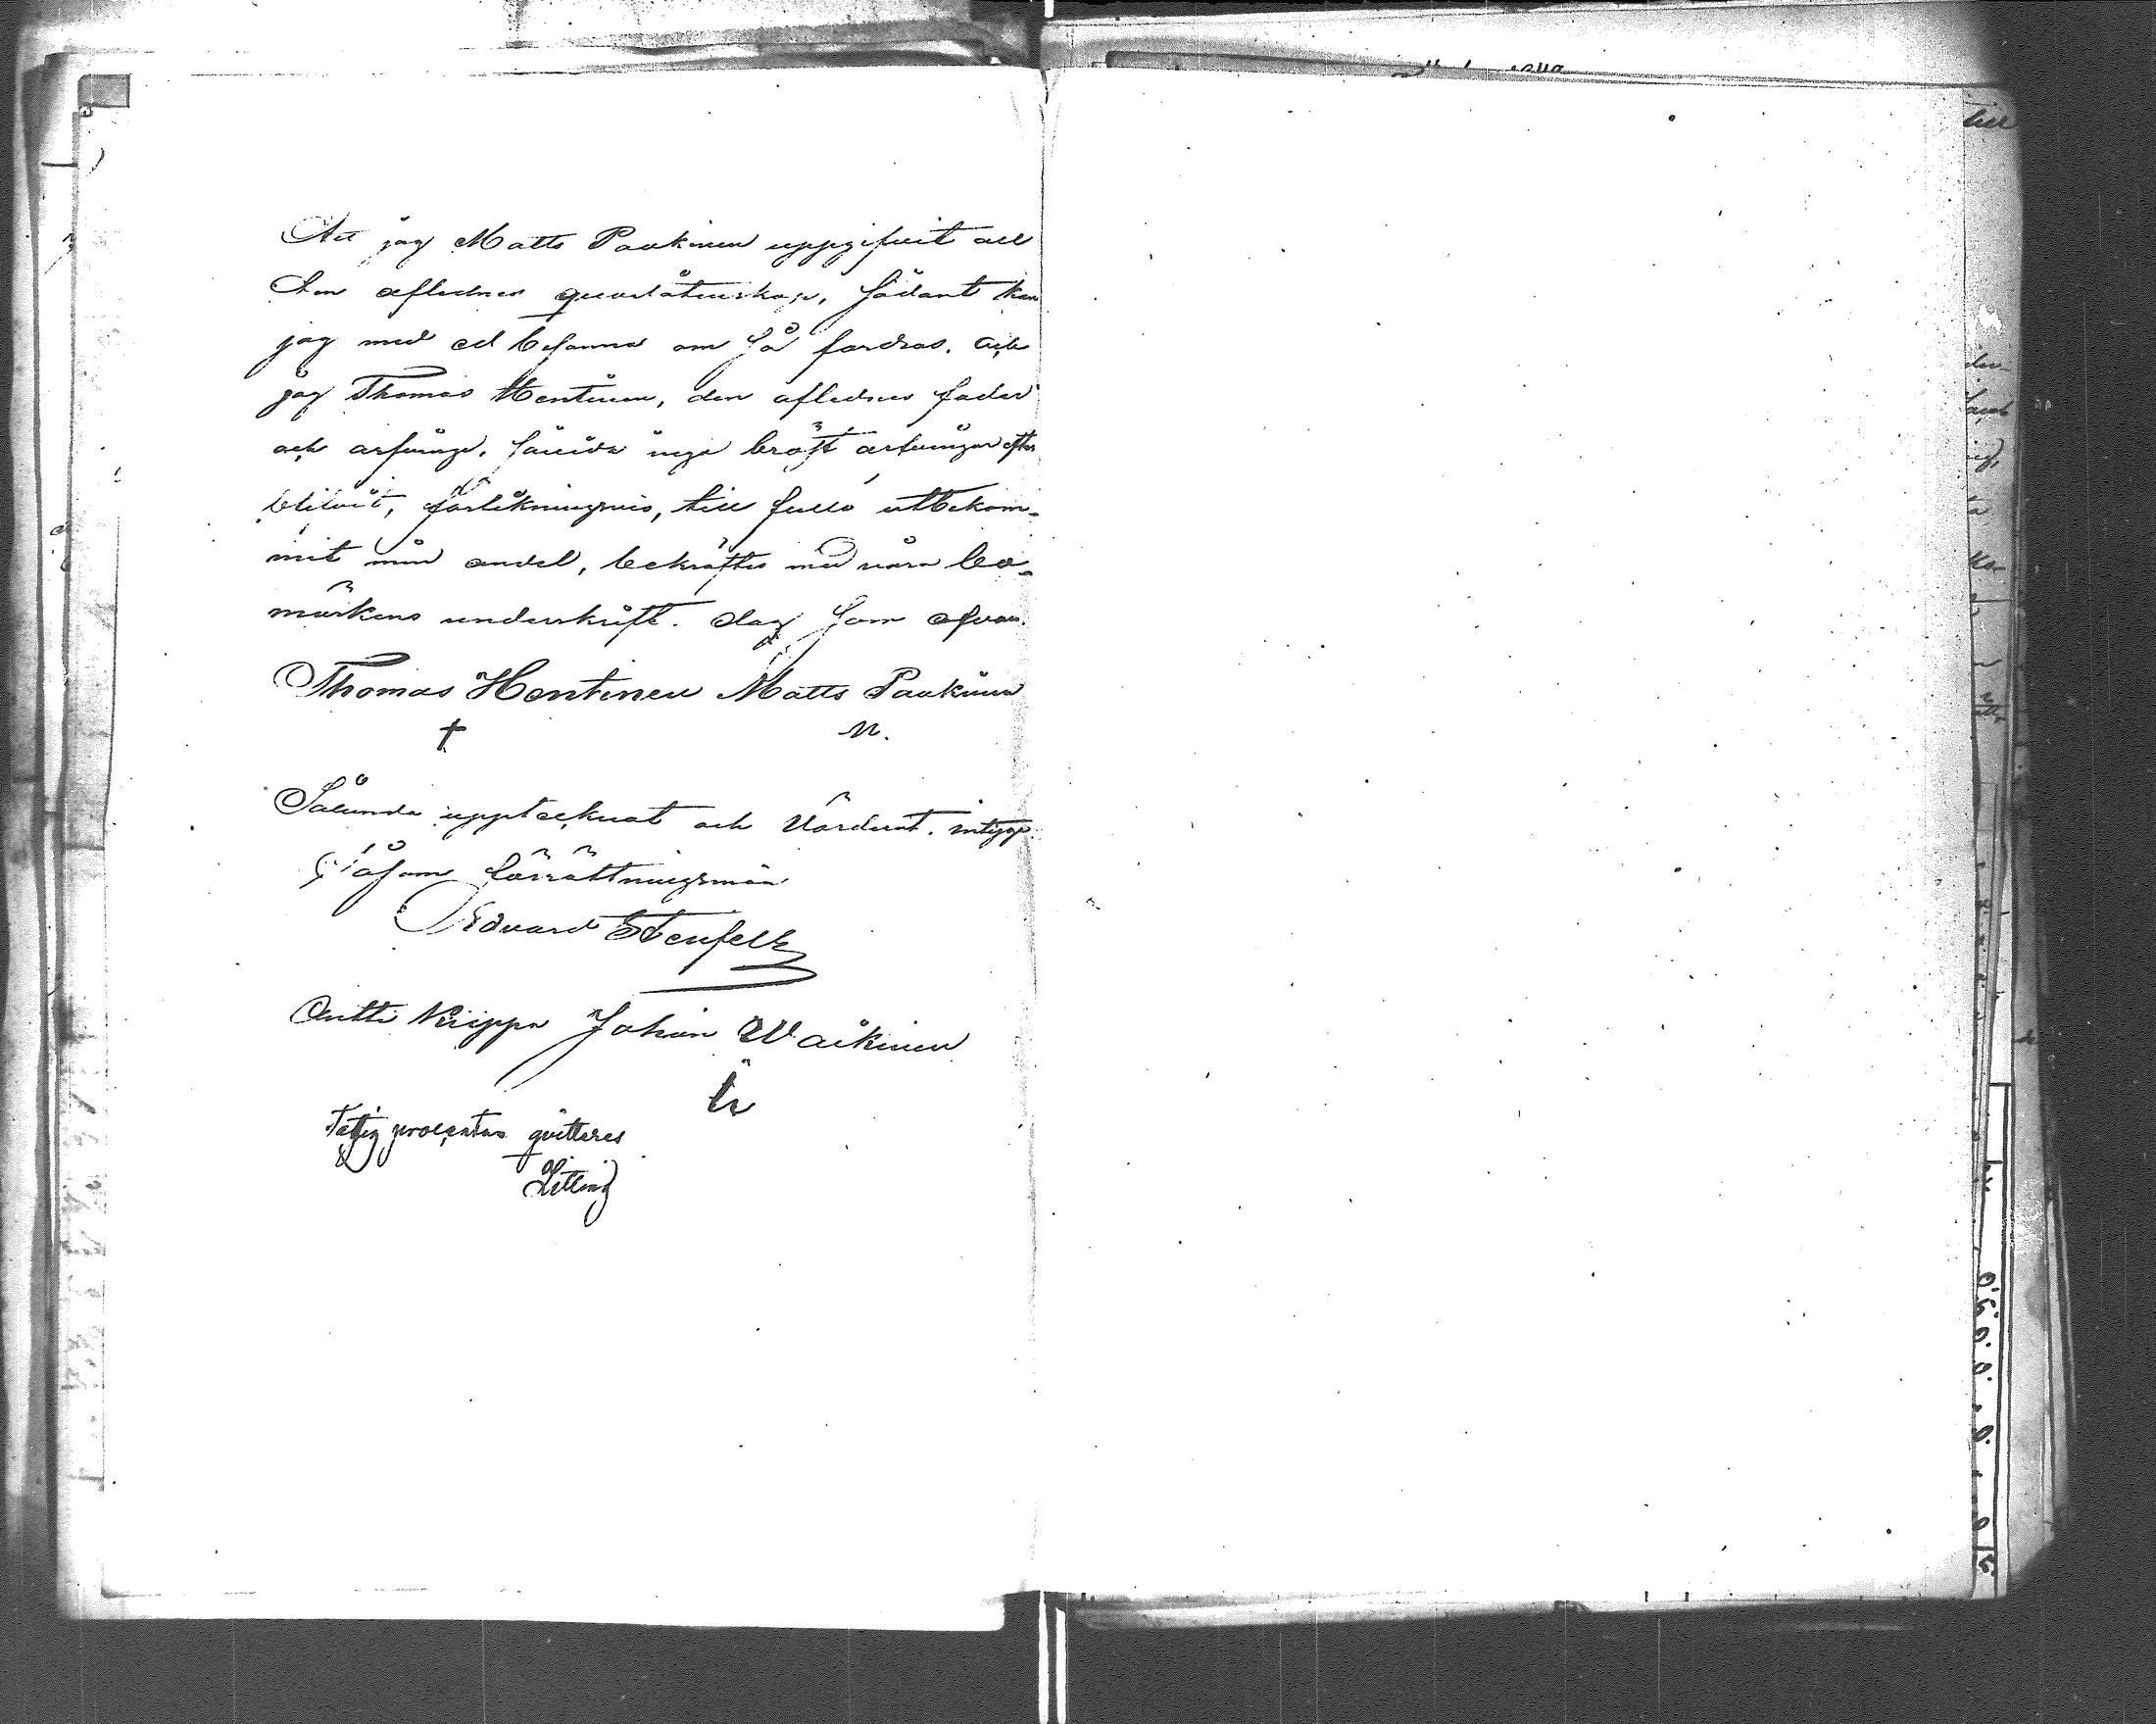 Att jag Matts Paakinen uppgifvit all
den aflednes qvarlåtenskap, sådant kan
jag med ed besanna om så fordras. Och
jag Thomas Hentinen, den aflednes fader
och arfvinge, såvida inga bröst arfvingar efter
blifvit, förlikningsvis, till fullo utbekom-
mit min andel, bekräftas med våra bo-
märkens underskrift. dag som ofvan.
Thomas Hentinen Matts Paakinen
Sålunda upptecknat och värderat. intyga
Såsom förrättningsmän
Edvard Stenfelt
Antti Krippa Johan Waikinen
Fattig procenten qvitteras